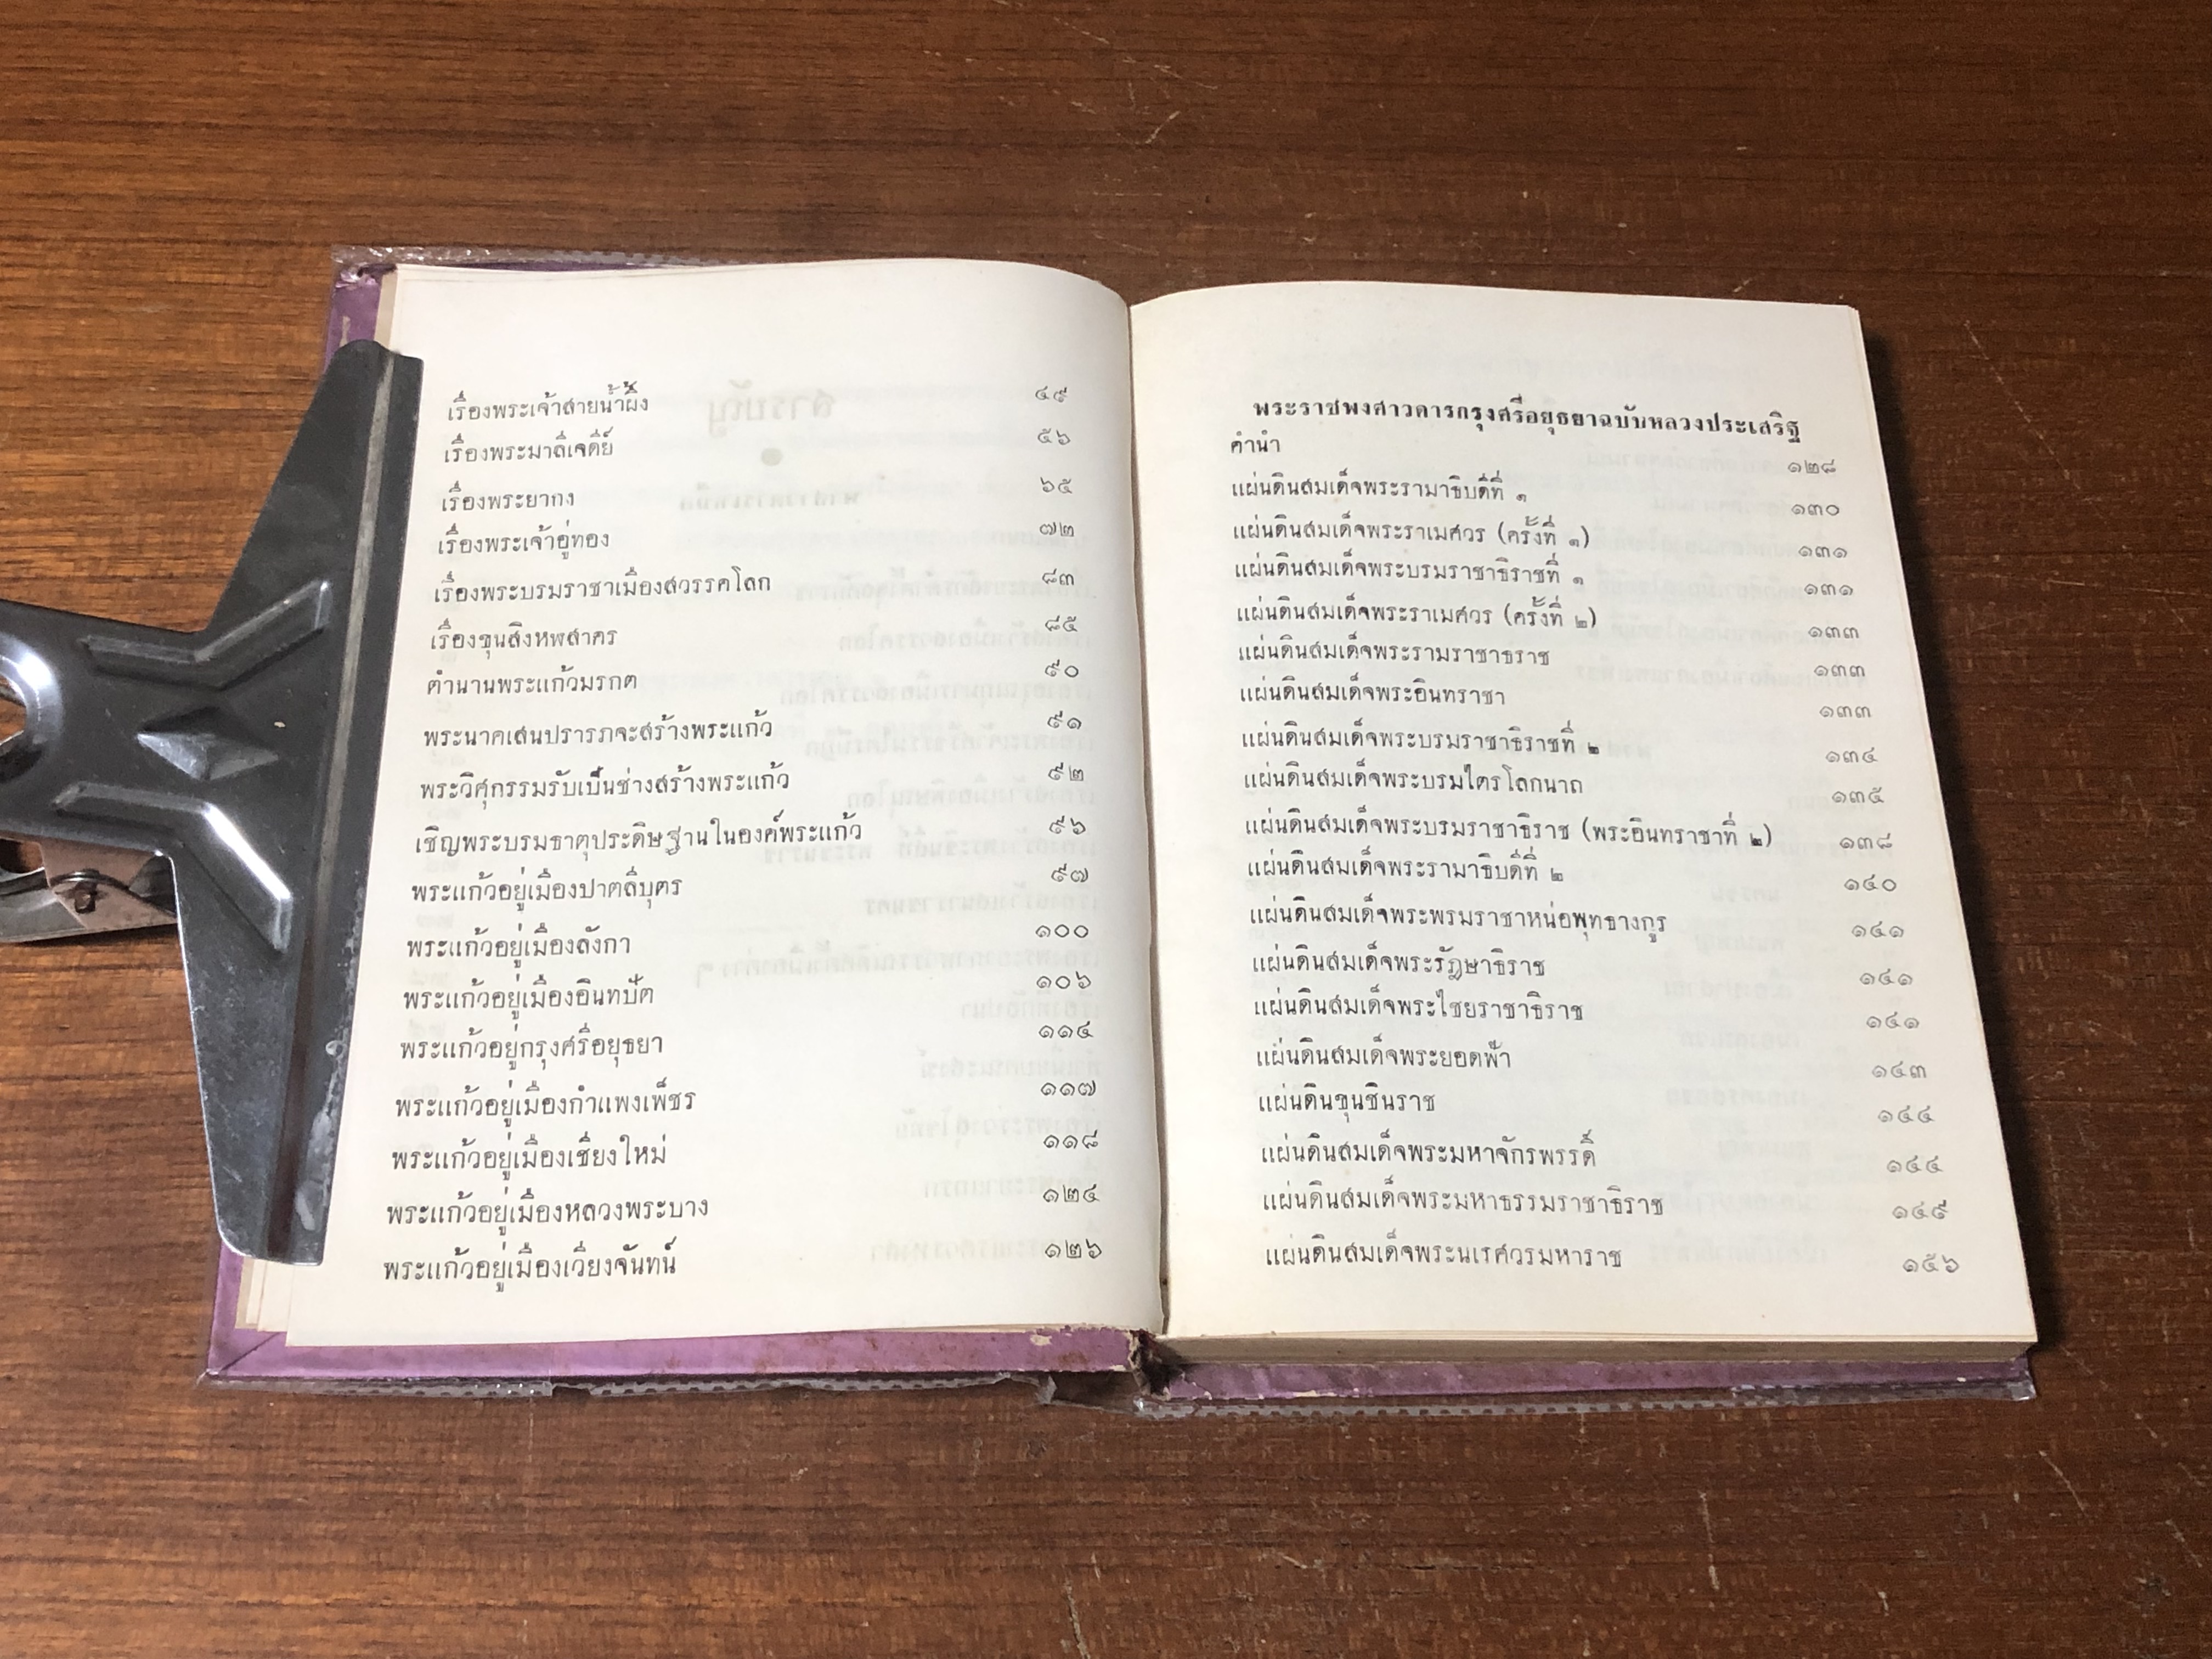 เรื่องพระเจ้าสายน้ำผึ้ง ๔๙
เรื่องพระมาลีเจดีย์ ๕๖
เรื่องพระยากง ๖๕
เรื่องพระเจ้าอู่ทอง ๗๒
เรื่องพระบรมราชาเมืองสวรรคโลก ๘๓
เรื่องขุนสิงหพสาคร ๘๕
ตำนานพระแก้วมรกต ๙๐
พระนาคเสนปรารภจะสร้างพระแก้ว ๙๑
พระวิศุกรรมรับเป็นช่างสร้างพระแก้ว ๙๒
เชิญพระบรมธาตุประดิษฐานในองค์พระแก้ว ๙๖
พระแก้วอยู่เมืองปาตลีบุตร ๙๗
พระแก้วอยู่เมืองลังกา ๑๐๐
พระแก้วอยู่เมืองอินทปัต ๑๐๖
พระแก้วอยู่กรุงศรีอยุธยา ๑๑๔
พระแก้วอยู่เมืองกำแพงเพ็ชร ๑๑๗
พระแก้วอยู่เมืองเชียงใหม่ ๑๑๘
พระแก้วอยู่เมืองหลวงพระบาง ๑๒๔
พระแก้วอยู่เมืองเวียงจันทน์ ๑๒๖
พระราชพงศาวดารกรุงศรีอยุธยาฉบับหลวงประเสริฐ
คำนำ ๑๒๘
แผ่นดินสมเด็จพระรามาธิบดีที่ ๑ ๑๓๐
แผ่นดินสมเด็จพระราเมศวร (ครั้งที่ ๑) ๑๓๑
แผ่นดินสมเด็จพระบรมราชาธิราชที่ ๑ ๑๓๑
แผ่นดินสมเด็จพระราเมศวร (ครั้งที่ ๒) ๑๓๓
แผ่นดินสมเด็จพระรามราชาธราช ๑๓๓
แผ่นดินสมเด็จพระอินทราชา ๑๓๓
แผ่นดินสมเด็จพระบรมราชาธิราชที่ ๒ ๑๓๔
แผ่นดินสมเด็จพระบรมไตรโลกนาถ ๑๓๕
แผ่นดินสมเด็จพระบรมราชาธิราช (พระอินทราชาที่ ๒) ๑๓๘
แผ่นดินสมเด็จพระรามาธิบดีที่ ๒ ๑๔๐
แผ่นดินสมเด็จพระพรมราชาหน่อพุทธางกูร ๑๔๑
แผ่นดินสมเด็จพระรัฎษาธิราช ๑๔๑
แผ่นดินสมเด็จพระไชยราชาธิราช ๑๔๑
แผ่นดินสมเด็จพระยอดฟ้า ๑๔๓
แผ่นดินขุนชินราช ๑๔๔
แผ่นดินสมเด็จพระมหาจักรพรรดิ์ ๑๔๔
แผ่นดินสมเด็จพระมหาธรรมราชาธิราช ๑๔๙
แผ่นดินสมเด็จพระนเรศวรมหาราช ๑๕๖